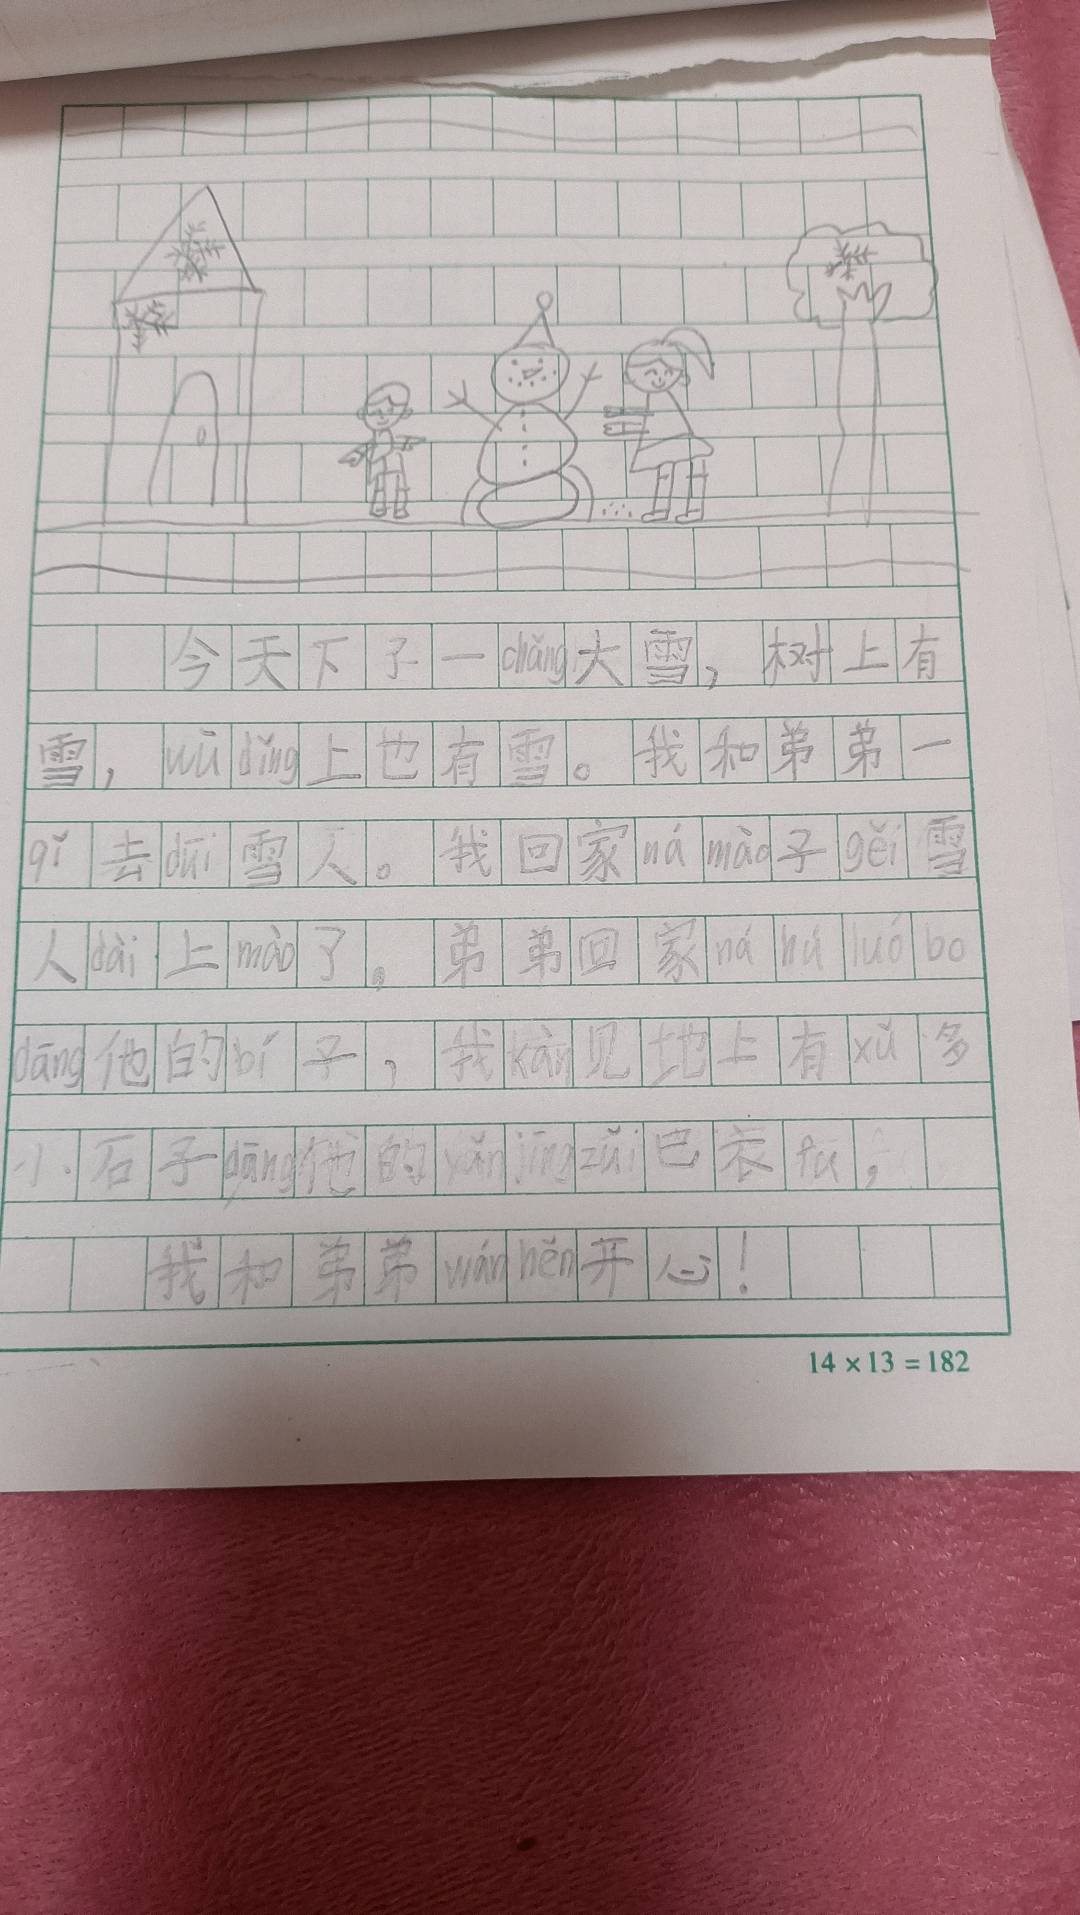 今天下了一chǎng大雪，树上有
雪，wū dǐng上也有雪。我和弟弟一
qǐ去duī雪人。我回家ná mào子gěi雪
人dài上mào了。弟弟回家ná hú luó bo
dāng他的bí子，我kàn见地上有xǔ多
小石子dāng他的yǎn jīng zuǐ巴衣fu，
我和弟弟wán hěn开心！
14×13=182